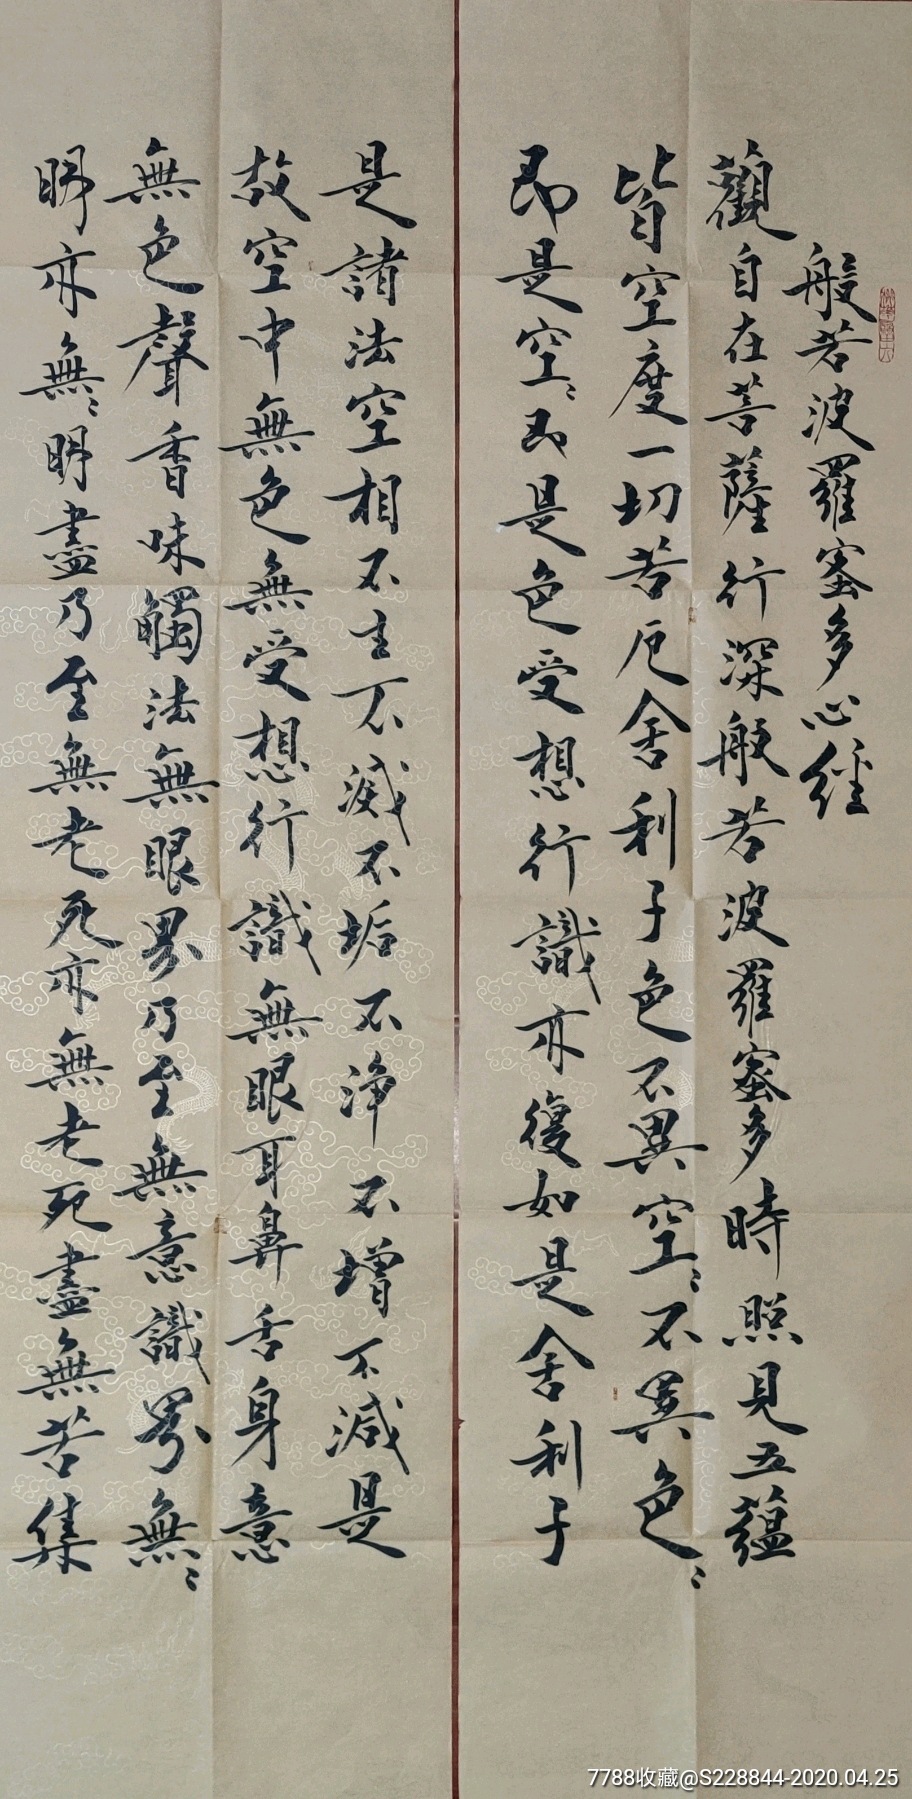 般若波羅蜜多心經
觀自在菩薩行深般若波羅蜜多時照見五蘊
皆空度一切苦厄舍利子色不異空〻不異色〻
即是空〻即是色受想行識亦復如是舍利子
是諸法空相不生不滅不垢不淨不增不減是
故空中無色無受想行識無眼耳鼻舌身意
無色聲香味觸法無眼界乃至無意識界無〻
眀亦無〻眀盡乃至無老死亦無老死盡無苦集
7788收藏@S228844-2020.04.25